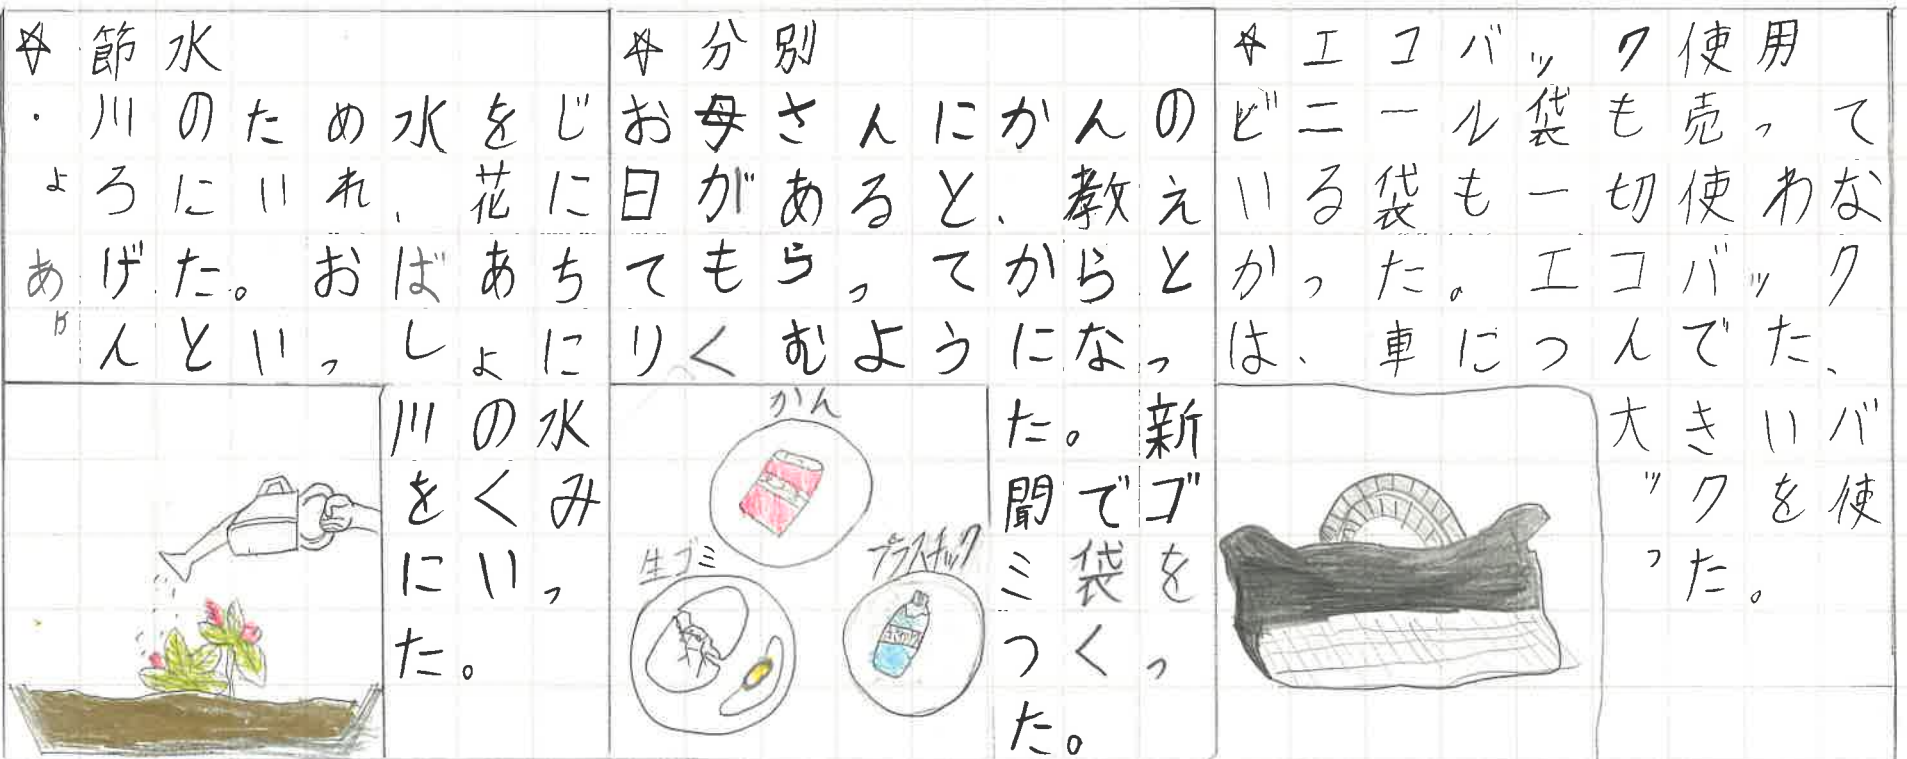 ☆節水
・川のため水をじ
ょろにいれ、花に
あげた。おばあち
ゃんといっしょに
川の水
をくみ
にいっ
た。
☆分別
お母さんにかんの
日があると、教え
てもらってからと
りくむようになっ
た。新
聞でゴ
ミ袋を
つくっ
た。
かん
生ゴミ
プラスチック
☆エコバック使用
ビニール袋も売って
いる袋も一切使わな
かった。エコバック
は、車につんでた、
大きいバ
ックを使
った。